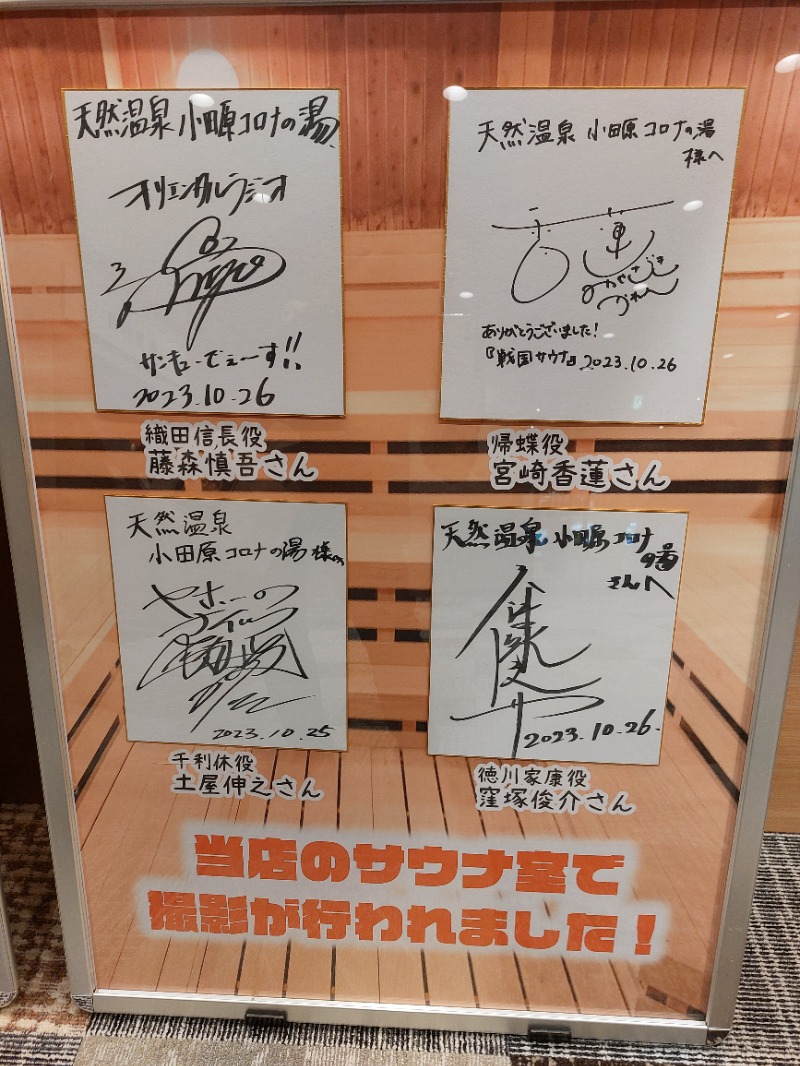 天然温泉 小田原コロナの湯
オリエンタルラジオ
サンキューでぇーす!!
2023.10.26
織田信長役
藤森慎吾さん
天然温泉 小田原コロナの湯
様へ
みやざき
かれん
ありがとうございました!
『戦国サウナ』2023.10.26
帰蝶役
宮崎香蓮さん
天然温泉
小田原コロナの湯 様へ
2023.10.25
千利休役
土屋伸之さん
天然温泉 小田原コロナ
の湯
さんへ
2023.10.26.
徳川家康役
窪塚俊介さん
当店のサウナ室で
撮影が行われました!